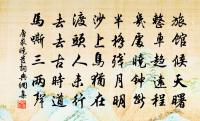 旅館候天曙
整車趨遠程
幾處曉鐘斷
半橋殘月明
沙上鳥猶在
渡頭人未行
去去古時道
馬嘶三兩聲
詞典網集